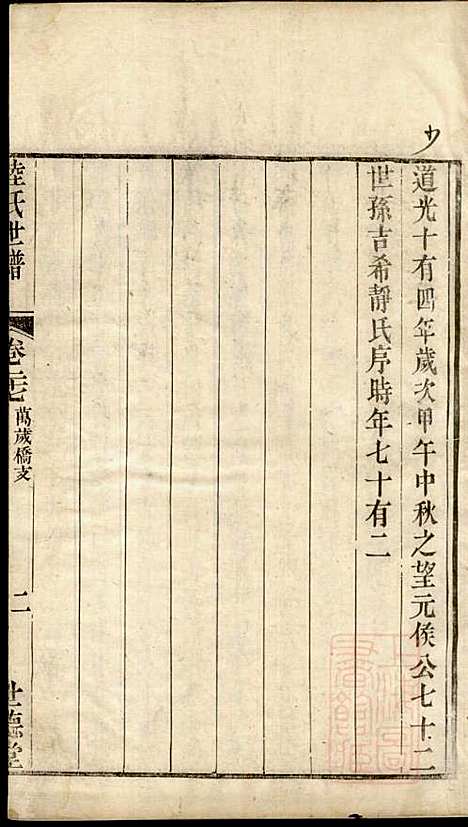 道光十有四年歲次甲午中秋之望元侯公七十二
世孫吉希靜氏序時年七十有二
陸氏世譜
萬歲橋支
二
世德堂